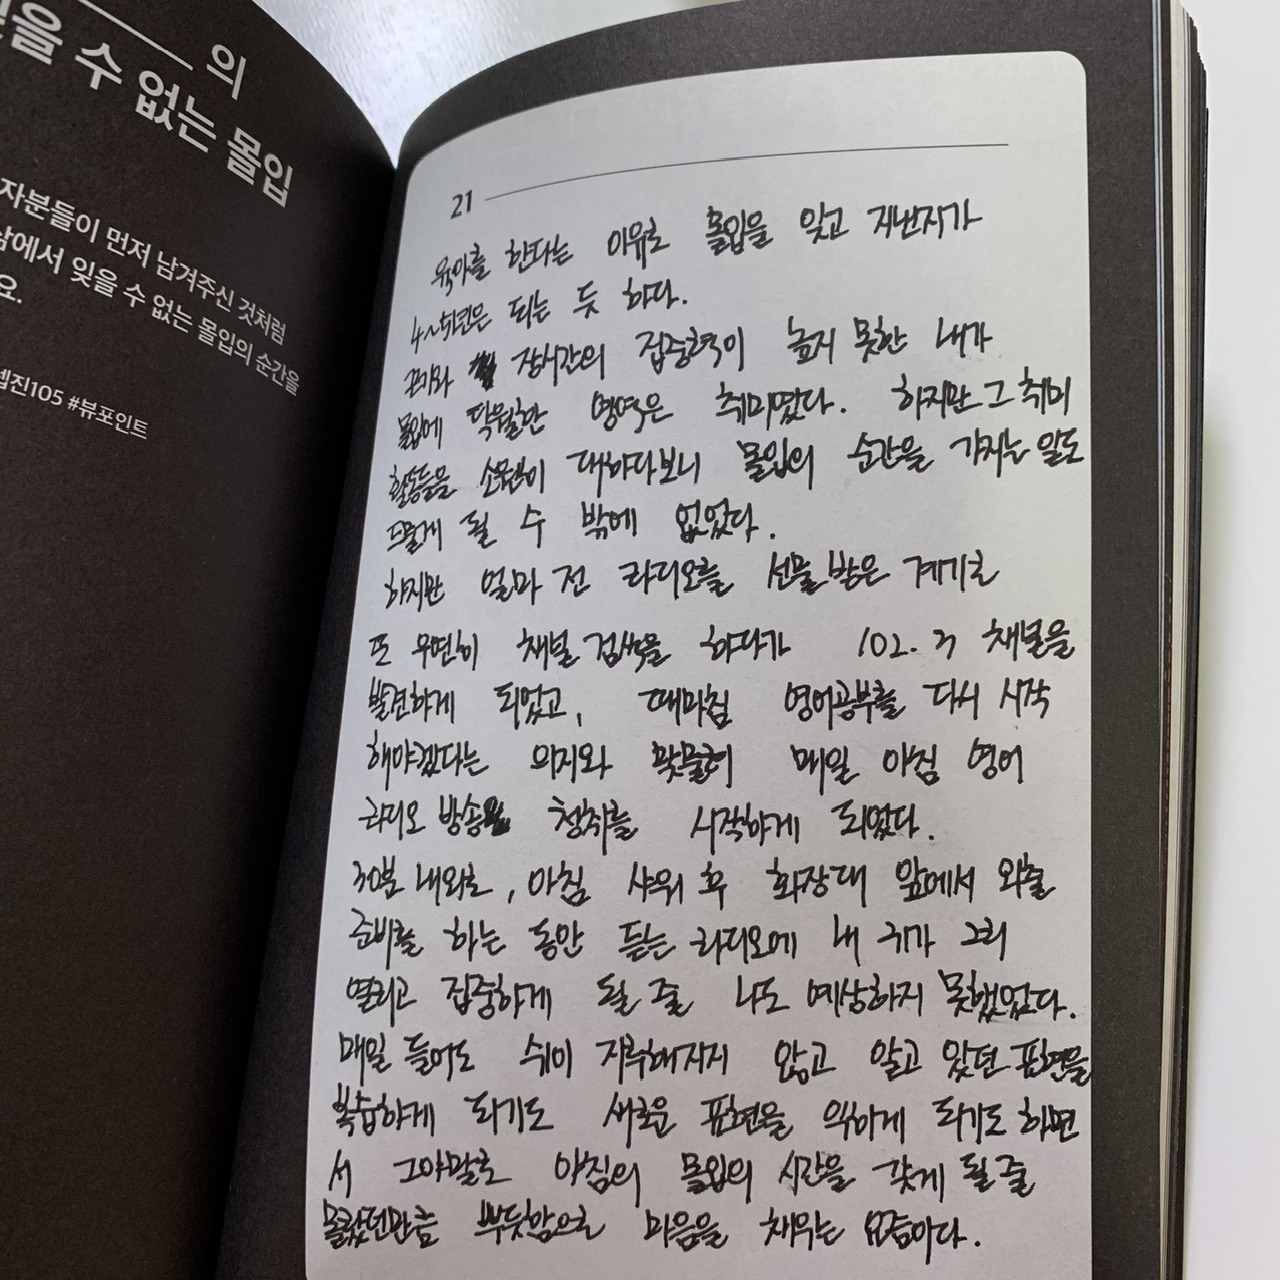 의
을 수 없는 몰입
자분들이 먼저 남겨주신 것처럼
에서 잊을 수 없는 몰입의 순간을
요.
진105 #뷰포인트
21
육아를 한다는 이유로 몰입을 잊고 지낸지가
4~5년은 되는 듯 하다.
끈기와 장시간의 집중력이 높지 못한 내가
몰입에 탁월한 영역은 취미였다. 하지만 그 취미
활동들을 소원히 대하다보니 몰입의 순간을 가지는 일도
드물게 될 수 밖에 없었다.
하지만 얼마 전 라디오를 선물 받은 계기로
또 우연히 채널 검색을 하다가 102.7 채널을
발견하게 되었고, 때마침 영어공부를 다시 시작
해야겠다는 의지와 맞물려 매일 아침 영어
라디오 방송 청취를 시작하게 되었다.
30분 내외로, 아침 샤워 후 화장대 앞에서 외출
준비를 하는 동안 듣는 라디오에 내 귀가 그리
열리고 집중하게 될 줄 나도 예상하지 못했었다.
매일 들어도 쉬이 지루해지지 않고 알고 있던 표현을
복습하게 되기도 새로운 표현을 익하게 되기도 하면
서 그야말로 아침의 몰입의 시간을 갖게 될 줄
몰랐던만큼 뿌듯함으로 마음을 채우는 요즘이다.